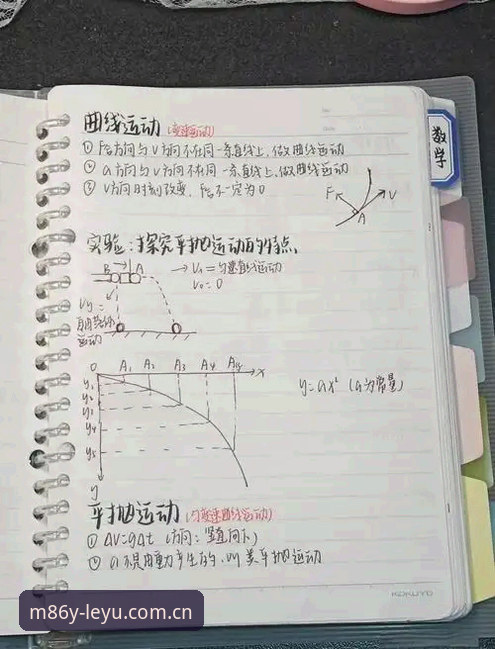 曲线运动 (变速运动)
① F合方向与V方向不在同一条直线上,做曲线运动
② a方向与v方向不在同一条直线上,做曲线运动
③ V方向时刻改变,F合不一定为0
F V
A
数学
实验:探究平抛运动的特点
B A → Vx = 匀速直线运动
V0=0
Vy =
自由落体
运动
O A1 A2 A3 A4 A5 x
y1
y2
y3
y4
y5
y
y=ax² (a为常量)
平抛运动 (匀变速曲线运动)
① ΔV=gΔt (方向:竖直向下)
② a不是由重力产生的,叫类平抛运动
KOKUYO
m86y-leyu.com.cn